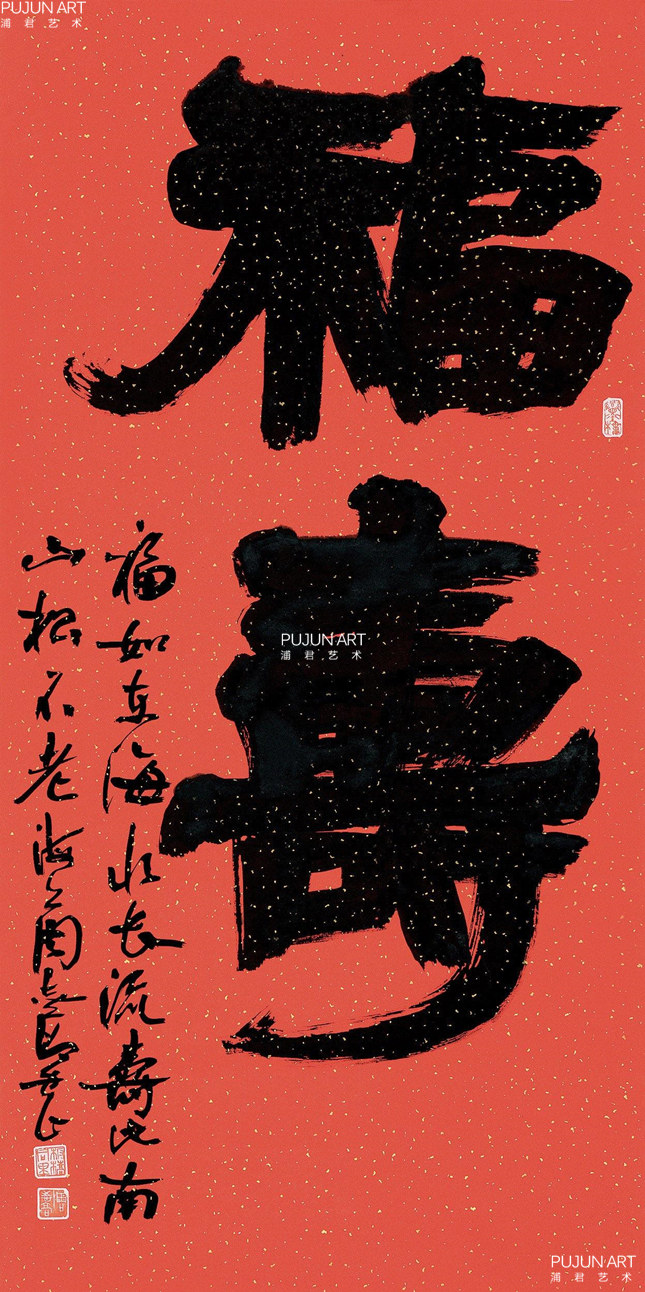 PUJUN ART
浦君艺术
福
壽
福如东海水长流壽比南
山松不老海上周志高
PUJUN ART
浦君艺术
PUJUN ART
浦君艺术